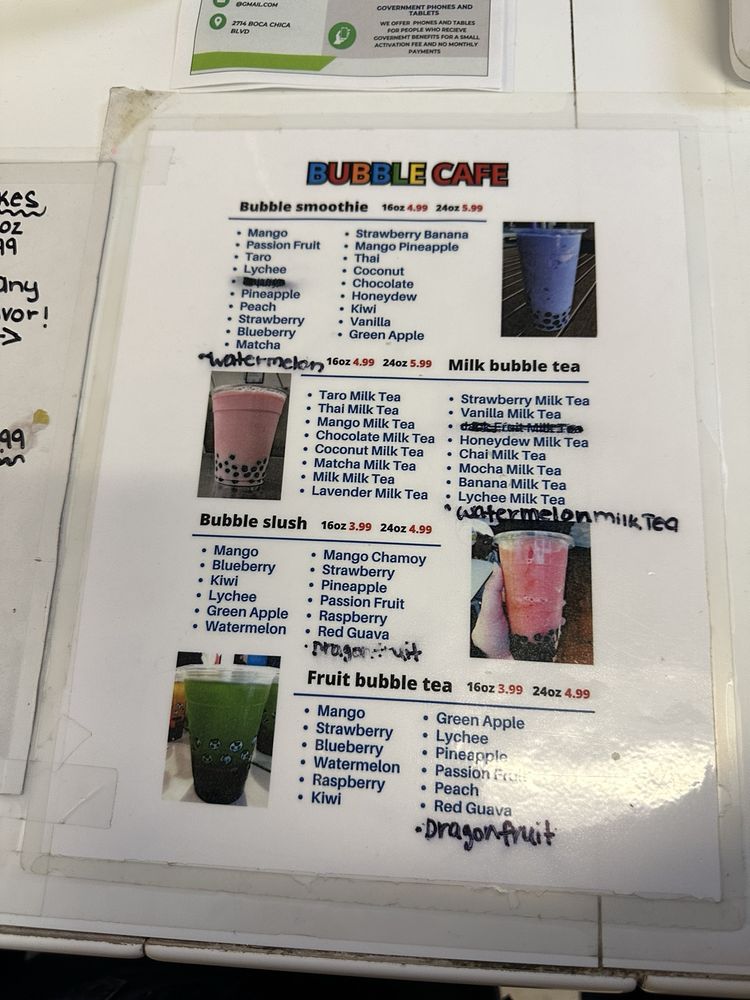 @GMAIL.COM
2714 BOCA CHICA
BLVD
GOVERNMENT PHONES AND
TABLETS
WE OFFER PHONES AND TABLES
FOR PEOPLE WHO RECIEVE
GOVERNEMT BENEFITS FOR A SMALL
ACTIVATION FEE AND NO MONTHLY
PAYMENTS
kes
oz
99
any
vor!
99
BUBBLE CAFE
Bubble smoothie 16oz 4.99 24oz 5.99
• Mango
• Passion Fruit
• Taro
• Lychee
• Pineapple
• Peach
• Strawberry
• Blueberry
• Matcha
• watermelon
• Strawberry Banana
• Mango Pineapple
• Thai
• Coconut
• Chocolate
• Honeydew
• Kiwi
• Vanilla
• Green Apple
16oz 4.99 24oz 5.99 Milk bubble tea
• Taro Milk Tea
• Thai Milk Tea
• Mango Milk Tea
• Chocolate Milk Tea
• Coconut Milk Tea
• Matcha Milk Tea
• Milk Milk Tea
• Lavender Milk Tea
• Strawberry Milk Tea
• Vanilla Milk Tea
• Honeydew Milk Tea
• Chai Milk Tea
• Mocha Milk Tea
• Banana Milk Tea
• Lychee Milk Tea
• watermelon milk Tea
Bubble slush 16oz 3.99 24oz 4.99
• Mango
• Blueberry
• Kiwi
• Lychee
• Green Apple
• Watermelon
• Mango Chamoy
• Strawberry
• Pineapple
• Passion Fruit
• Raspberry
• Red Guava
• Dragonfruit
Fruit bubble tea 16oz 3.99 24oz 4.99
• Mango
• Strawberry
• Blueberry
• Watermelon
• Raspberry
• Kiwi
• Green Apple
• Lychee
• Pineapple
• Passion Fruit
• Peach
• Red Guava
• Dragonfruit